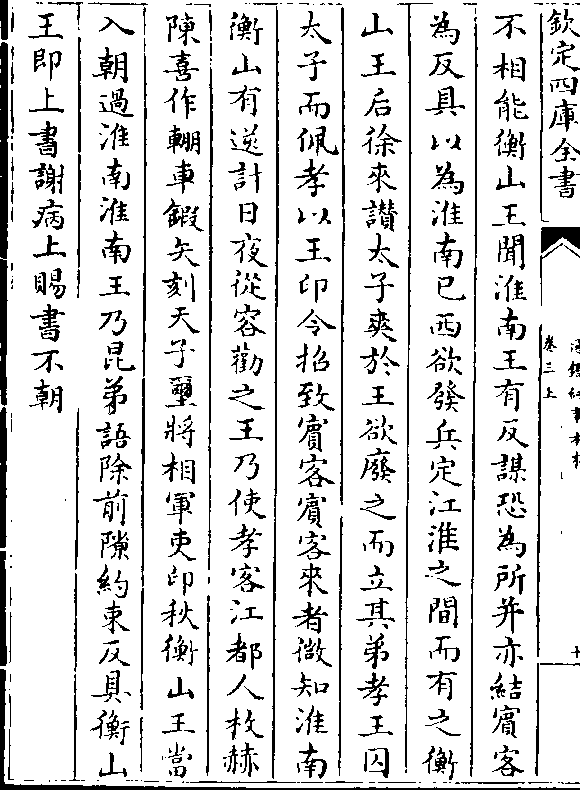 欽定四庫全書
卷三上
不相能衡山王聞淮南王有反謀恐為所并亦結賓客
為反具以為淮南已西欲發兵定江淮之間而有之衡
山王后徐來讃太子爽於王欲廢之而立其弟孝王囚
太子而佩孝以王印令招致賓客賓客來者微知淮南
衡山有逆計日夜從容勸之王乃使孝客江都人枚赫
陳喜作輣車鍜矢刻天子璽將相軍吏印秋衡山王當
入朝過淮南淮南王乃昆弟語除前隙約束反具衡山
王即上書謝病上賜書不朝